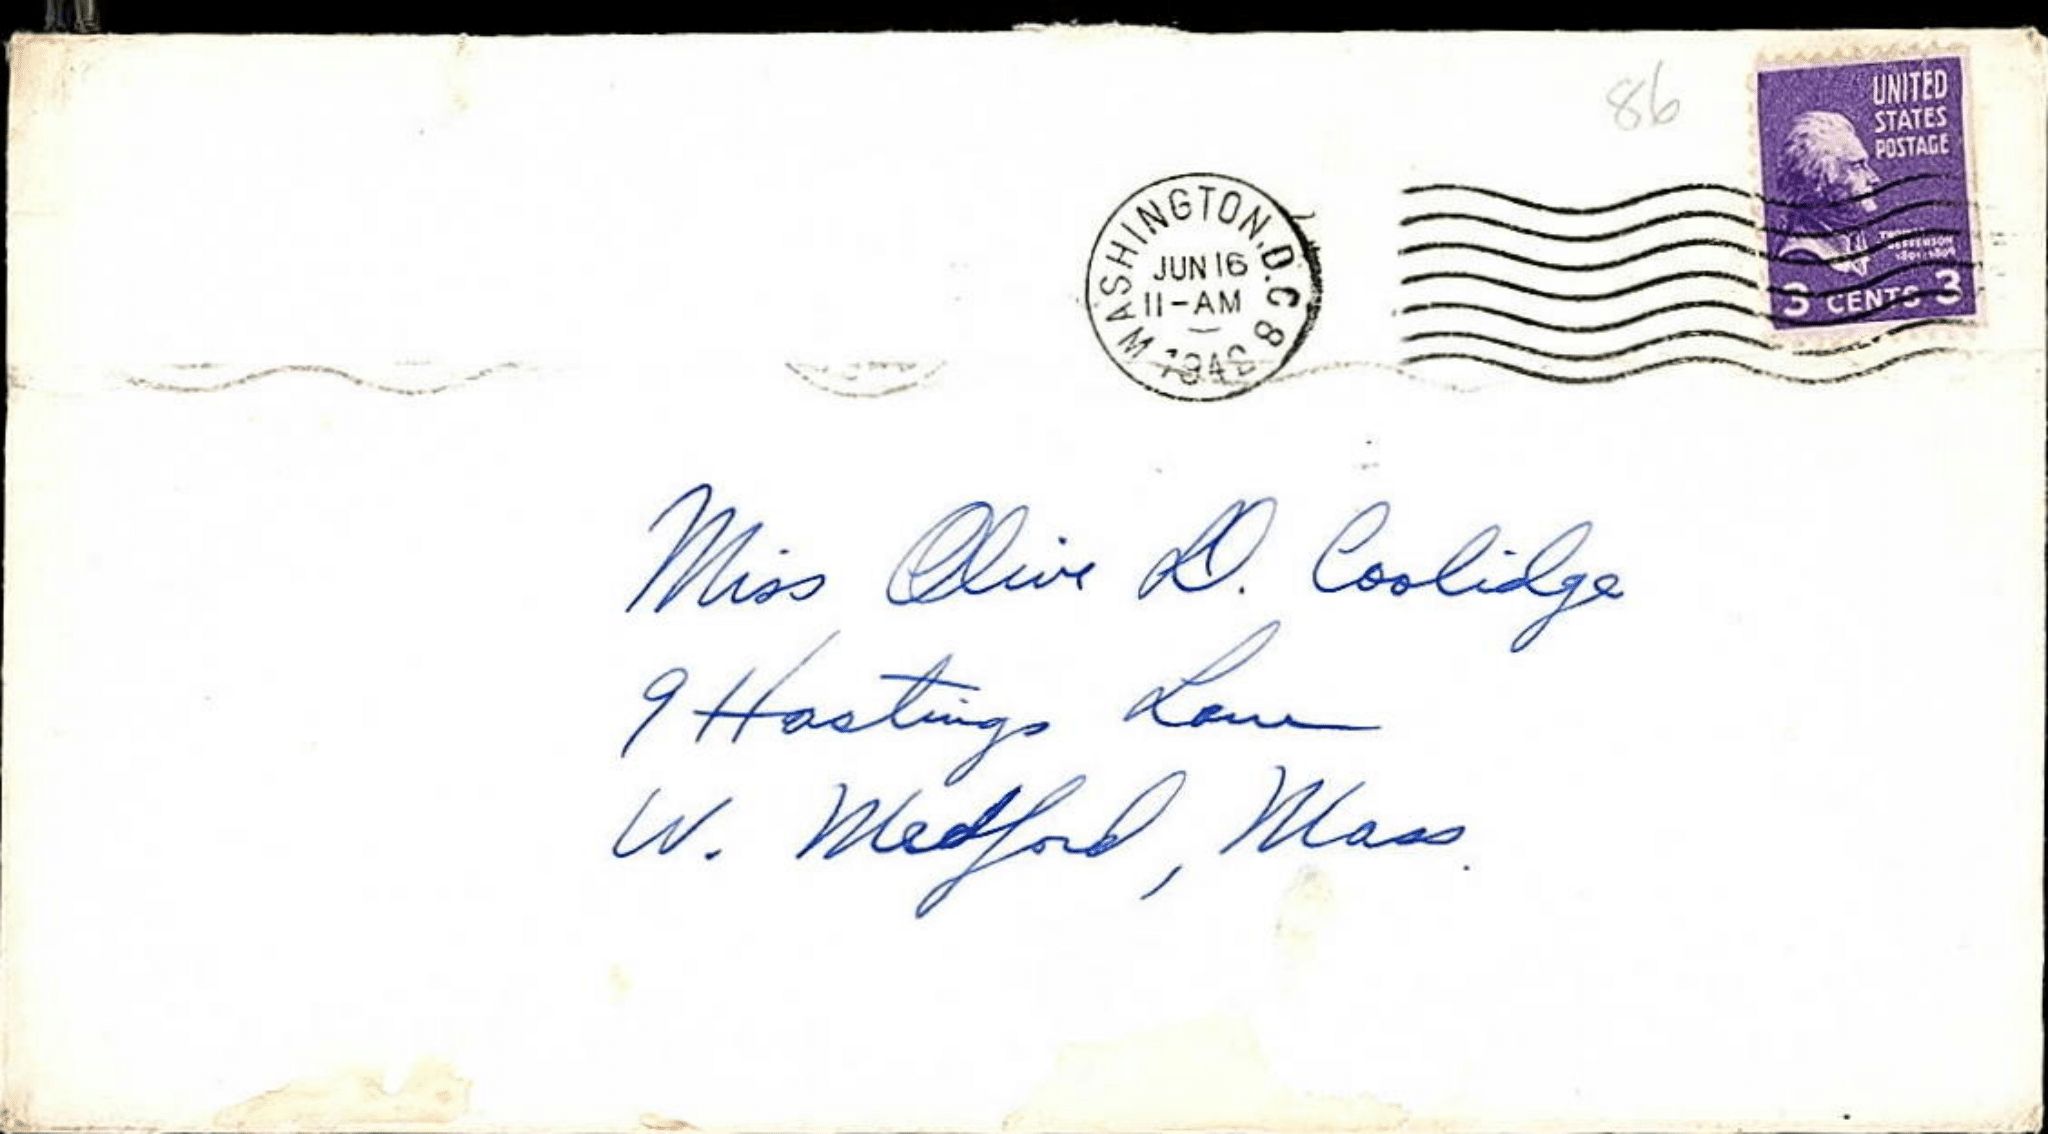 86
UNITED
STATES
POSTAGE
THOMAS
JEFFERSON
1801-1809
3 CENTS 3
WASHINGTON, D.C. 8
JUN 16
11-AM
Miss Olive D. Coolidge
9 Hastings Lane
W. Medford, Mass.